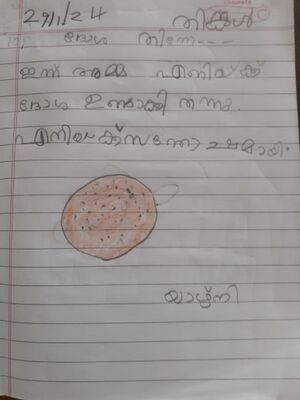 29/1/24 തിങ്കൾ
ദോശ തിന്നേ----
ഇന്ന് അമ്മ എനിയ്ക്ക്
ദോശ ഉണ്ടാക്കി തന്നു.
എനിയക്ക്സന്തോ ഷമായി.
യാഴ്നി